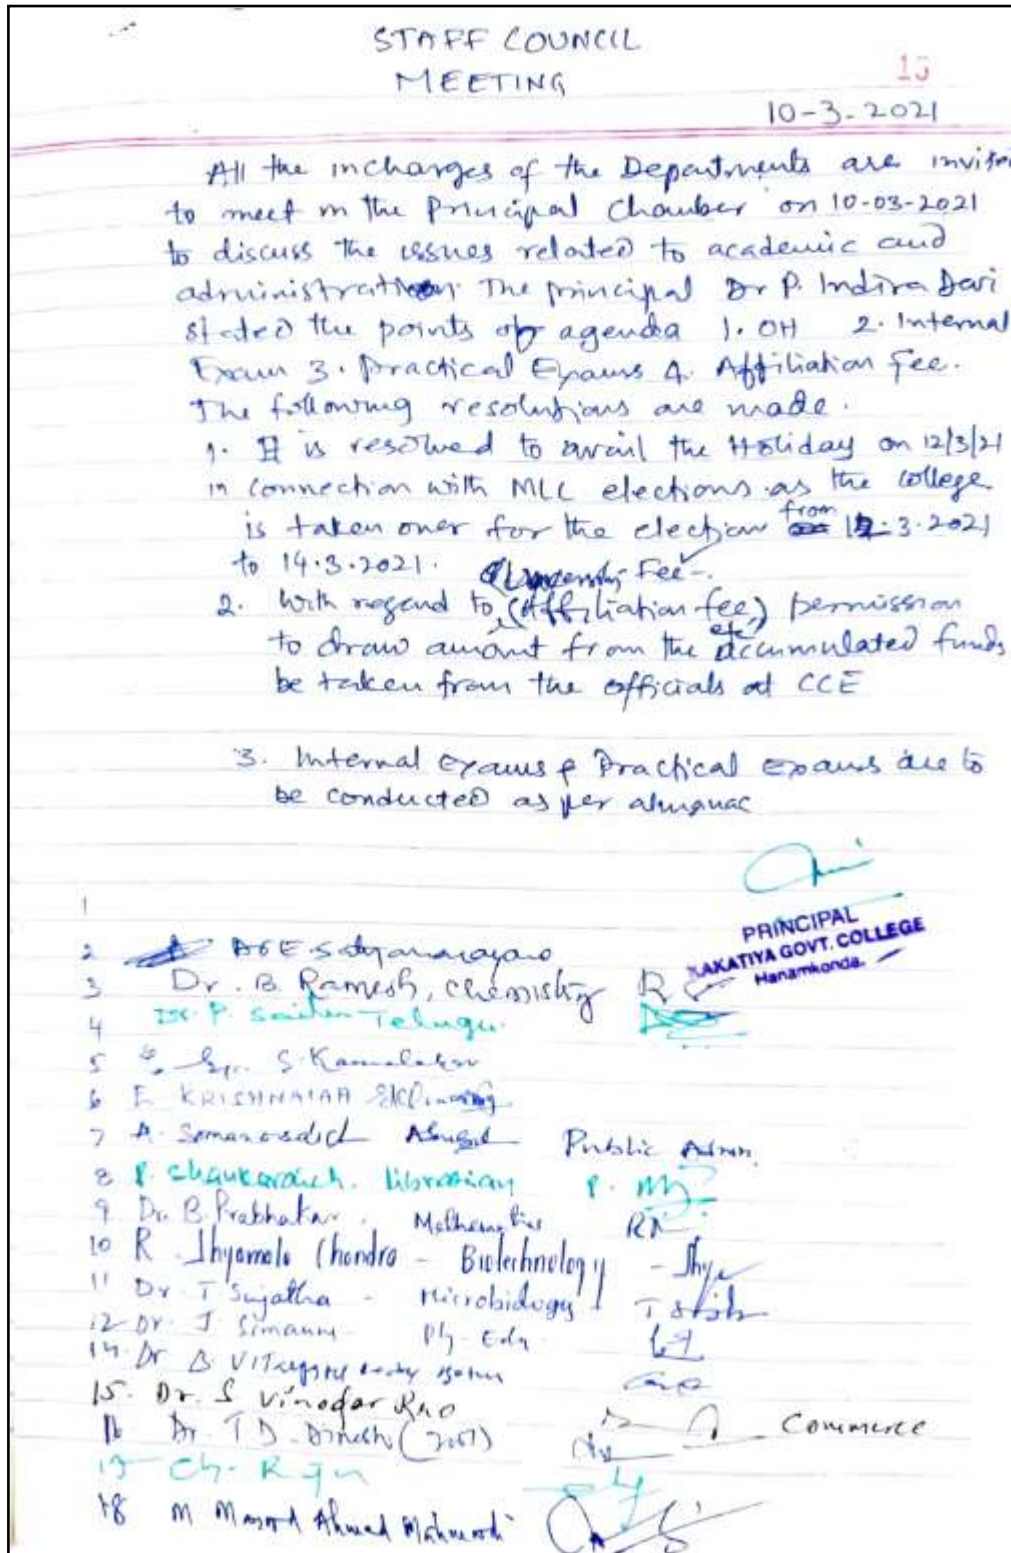 STAFF COUNCIL
MEETING
13
10-3-2021
All the incharges of the Departments are invited
to meet in the Principal Chamber on 10-03-2021
to discuss the issues related to academic and
administration The principal Dr P. Indira Devi
stated the points of agenda 1. OH 2. Internal
Exam 3. Practical Exams 4. Affiliation Fee.
The following resolutions are made.
1. It is resolved to avail the Holiday on 12/3/21
in connection with MLC elections as the college
is taken over for the election from 12.3.2021
to 14.3.2021. University Fee
2. With regard to (Affiliation fee, etc) permission
to draw amount from the accumulated funds
be taken from the officials at CCE
3. Internal exams & Practical exams are to
be conducted as per almanac
PRINCIPAL
KAKATIYA GOVT. COLLEGE
Hanamkonda.
1
2 Satyanarayana
3 Dr. B. Ramesh, Chemistry
4 Dr. P. Telugu
5 S. Kamalakar
6 E KRISHNAIAH
7 A. Public Admn
8 P. librarian
9 Dr. B. Prabhakar. Mathematics
10 R. Shyamala Chandra - Biotechnology - Shya
11 Dr. T Sujatha - Microbiology
12 Dr. J Ph. Edn
14 Dr B
15. Dr. S Vinodar Rao Commerce
16 Dr. T D. Dinesh
17 Ch. Raju
18 M Masood Ahmed